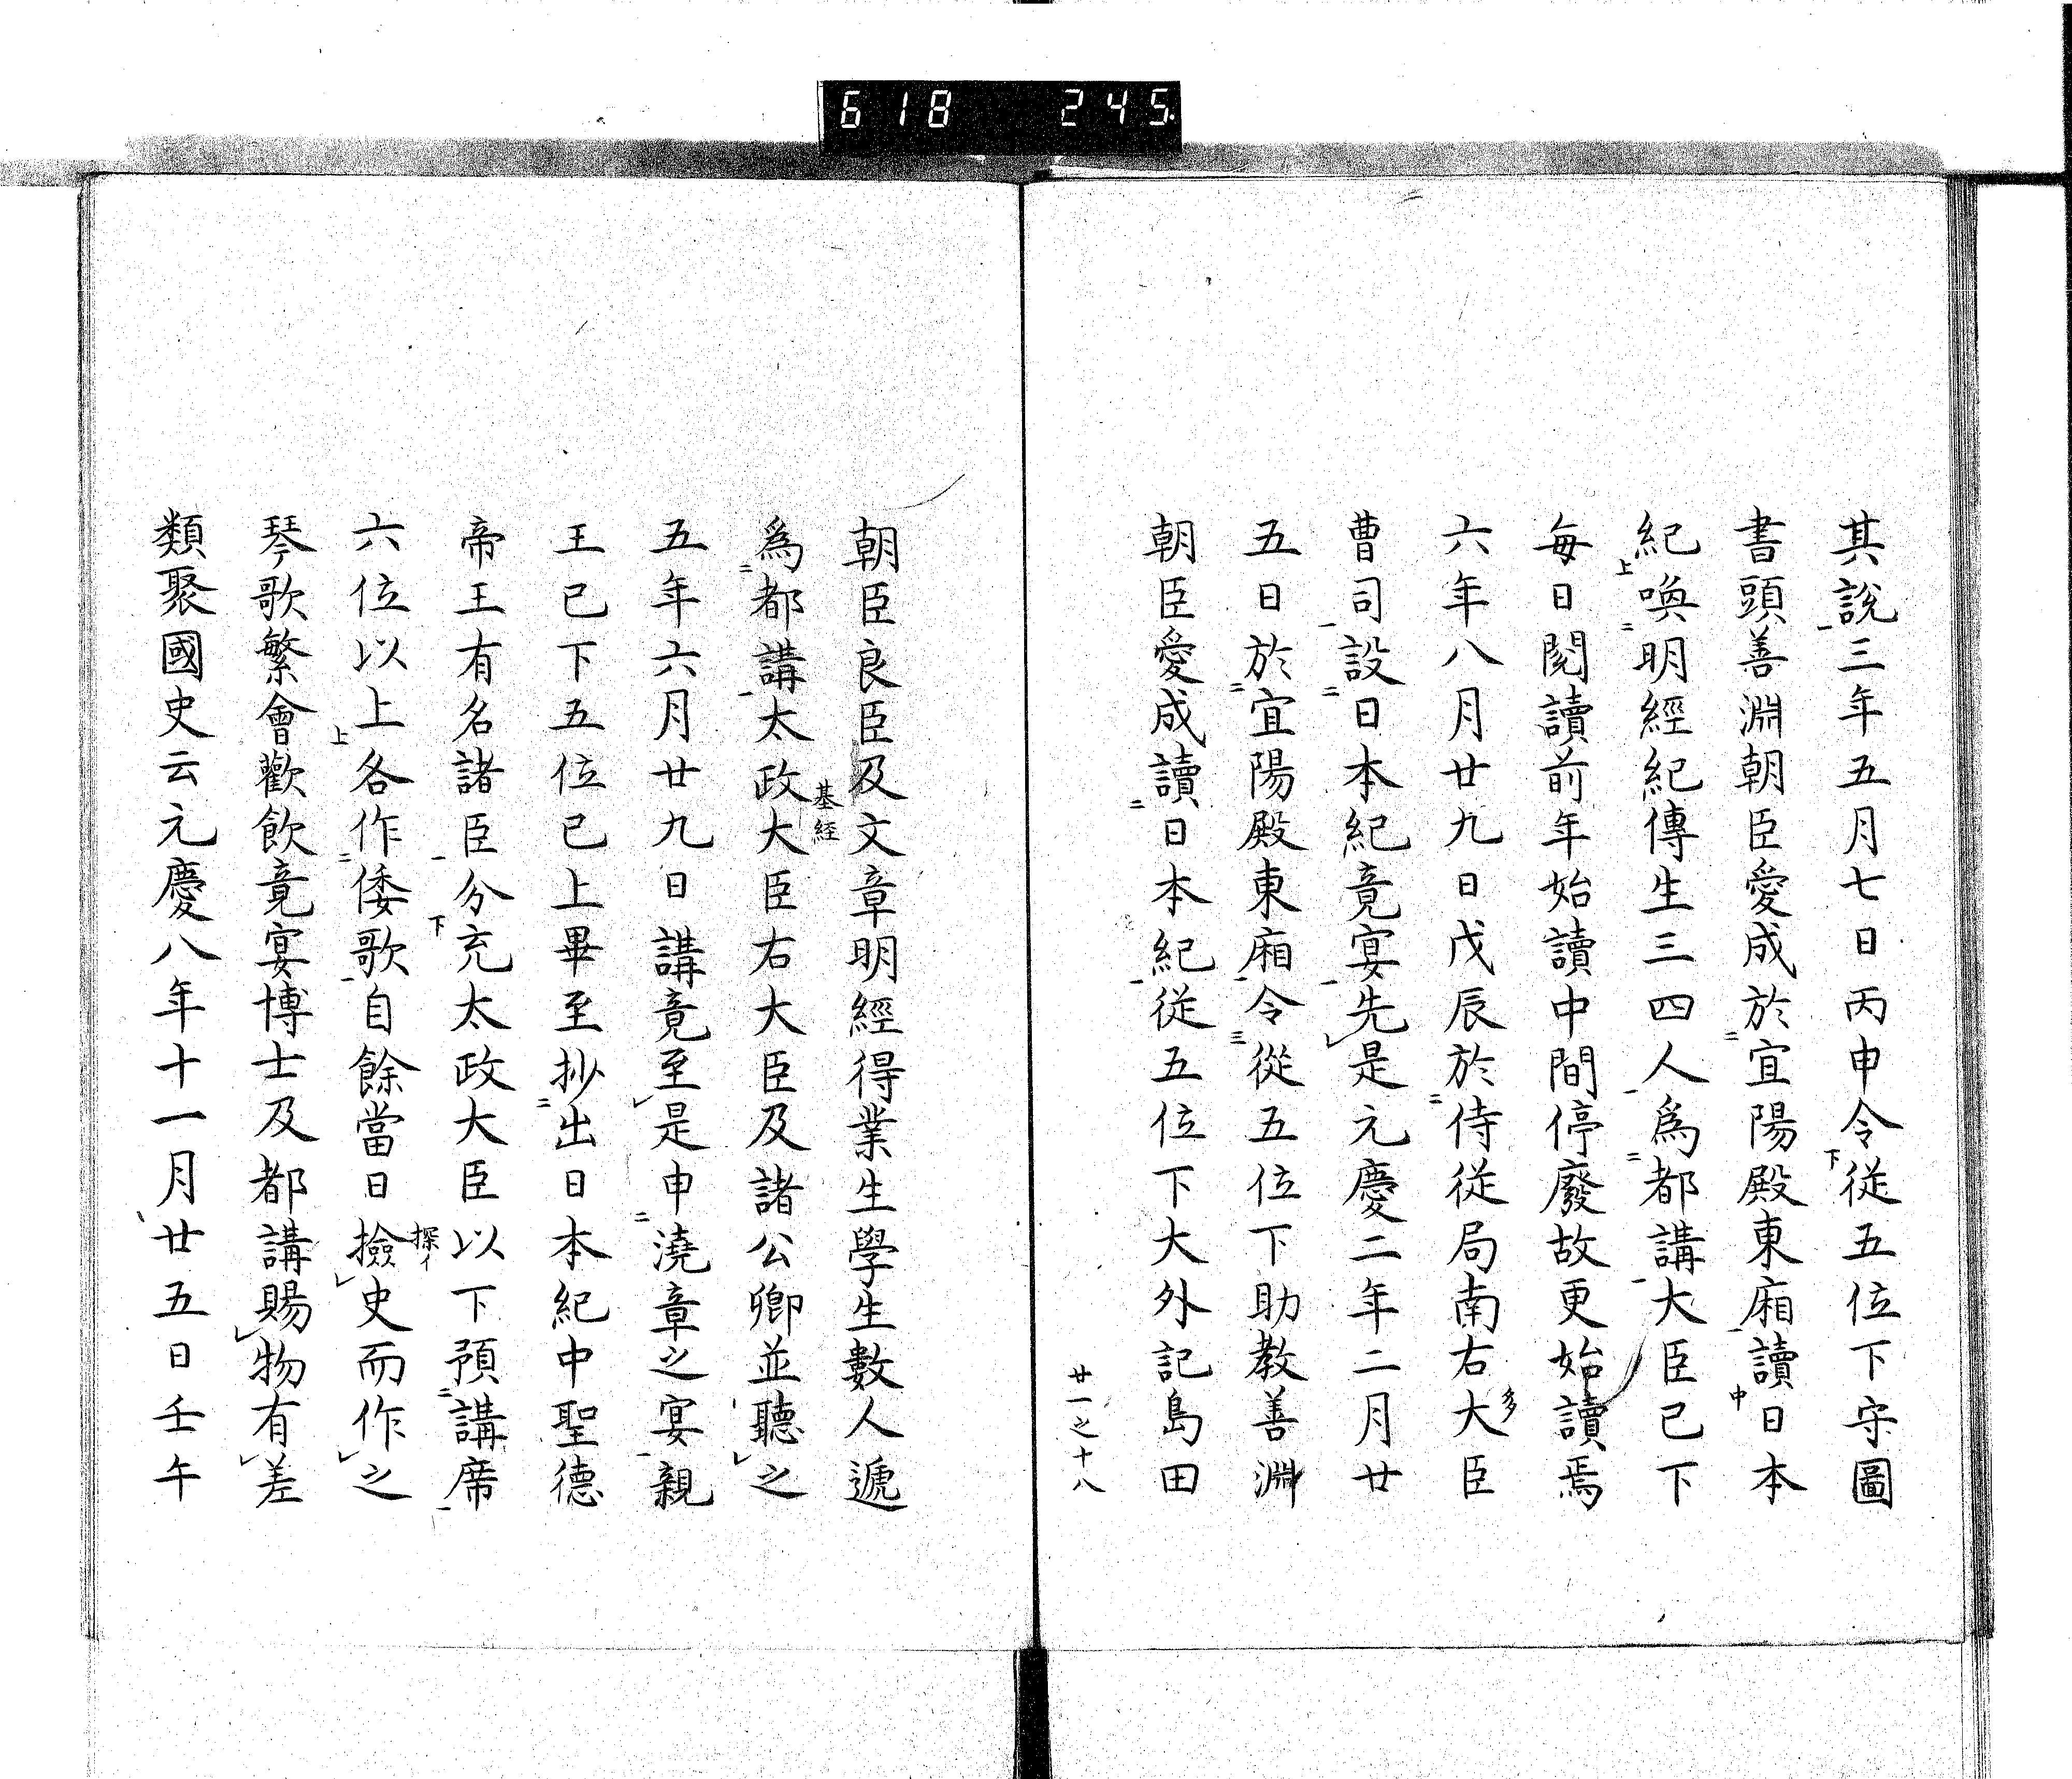 618 245
其說三年五月七日丙申令従五位下守圖
書頭善淵朝臣愛成於宜陽殿東廂讀日本
紀喚明經紀傳生三四人為都講大臣已下
每日閲讀前年始讀中間停廢故更始讀焉
六年八月廿九日戊辰於侍従局南右大臣
多
曹司設日本紀竟宴先是元慶二年二月廿
五日於宜陽殿東廂令從五位下助教善淵
朝臣愛成讀日本紀従五位下大外記島田
廿一之十八
朝臣良臣及文章明經得業生學生數人遞
為都講太政大臣右大臣及諸公卿並聽之
基経
五年六月廿九日講竟至是申澆章之宴親
王已下五位已上畢至抄出日本紀中聖德
帝王有名諸臣分充太政大臣以下預講席
六位以上各作倭歌自餘當日撿史而作之
探イ
琴歌繁會歡飲竟宴博士及都講賜物有差
類聚國史云元慶八年十一月廿五日壬午